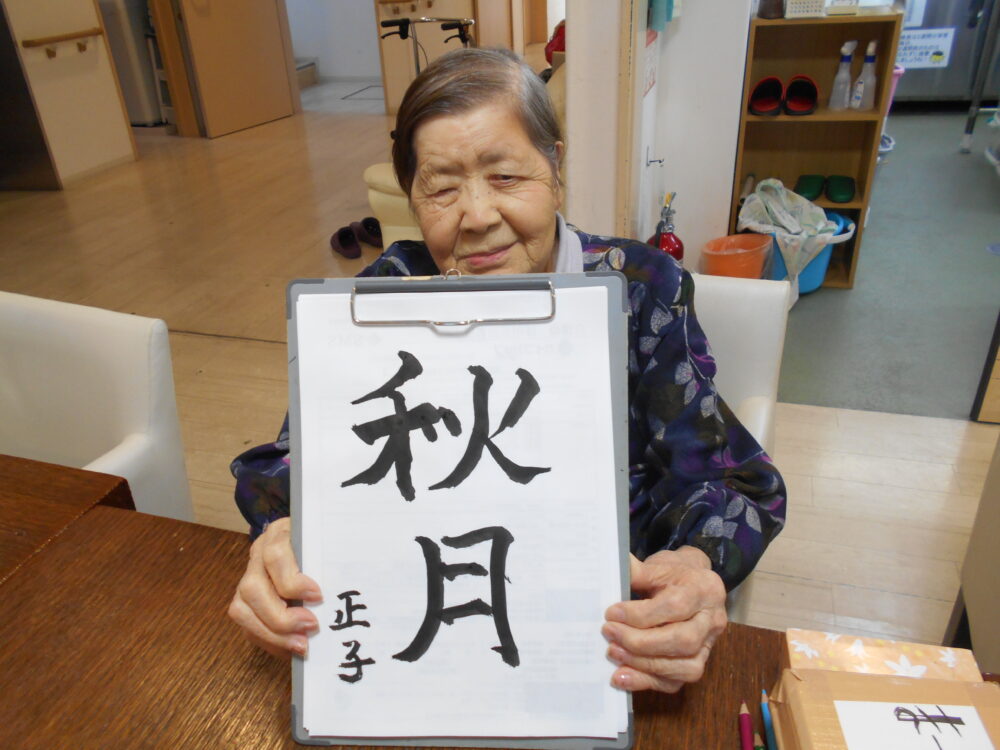 秋月
正子